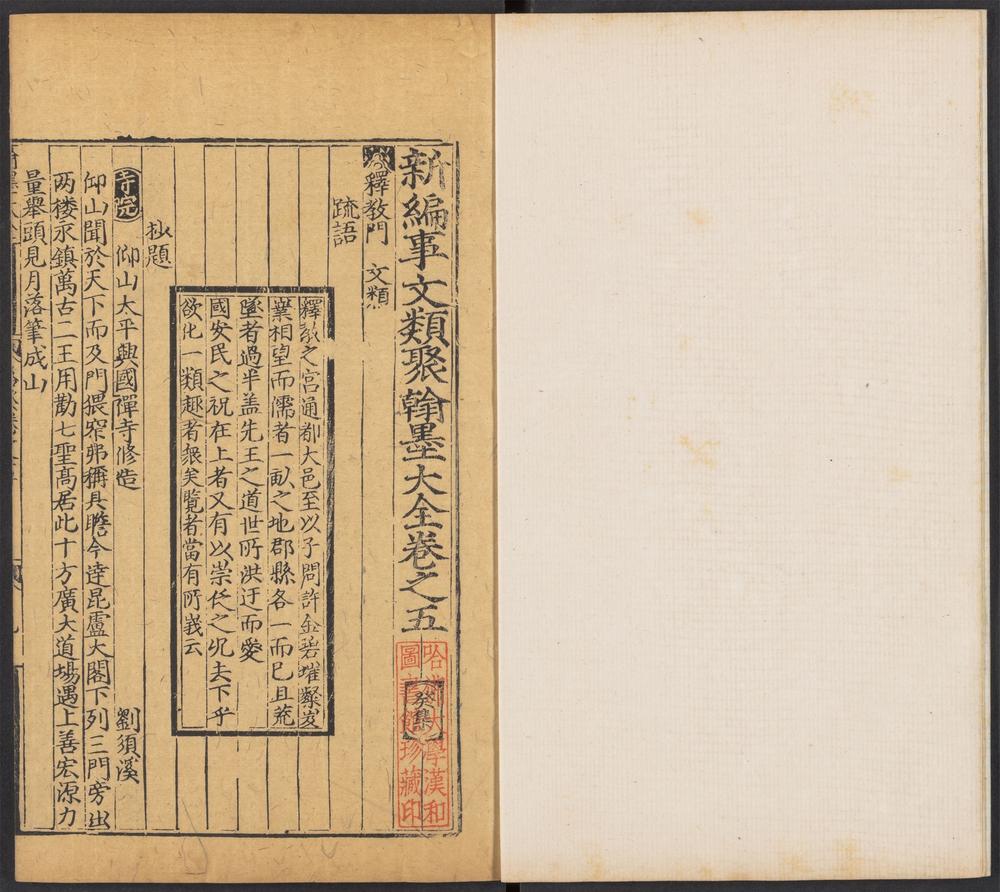 新編事文類聚翰墨大全卷之五
癸集
哈佛大學漢和
圖書館珍藏印
釋教門 文類
疏語
釋教之宮通都大邑至以子問許金碧璀璨岌
業相望而儒者一畒之地郡縣各一而已且荒
墜者過半盖先王之道世所洪迂而愛
國安民之祝在上者又有以崇仛之况夫下乎
欲化一類趣者衆矣覽者當有所𢦓云
抄題
寺院 仰山太平興國禪寺修造 劉須溪
仰山聞於天下而及門猥窄弗稱具瞻今逹昆盧大閣下列三門旁出
两楼永鎮萬古二王用勸七聖髙居此十方廣大道場遇上善宏源力
量舉頭見月落筆成山